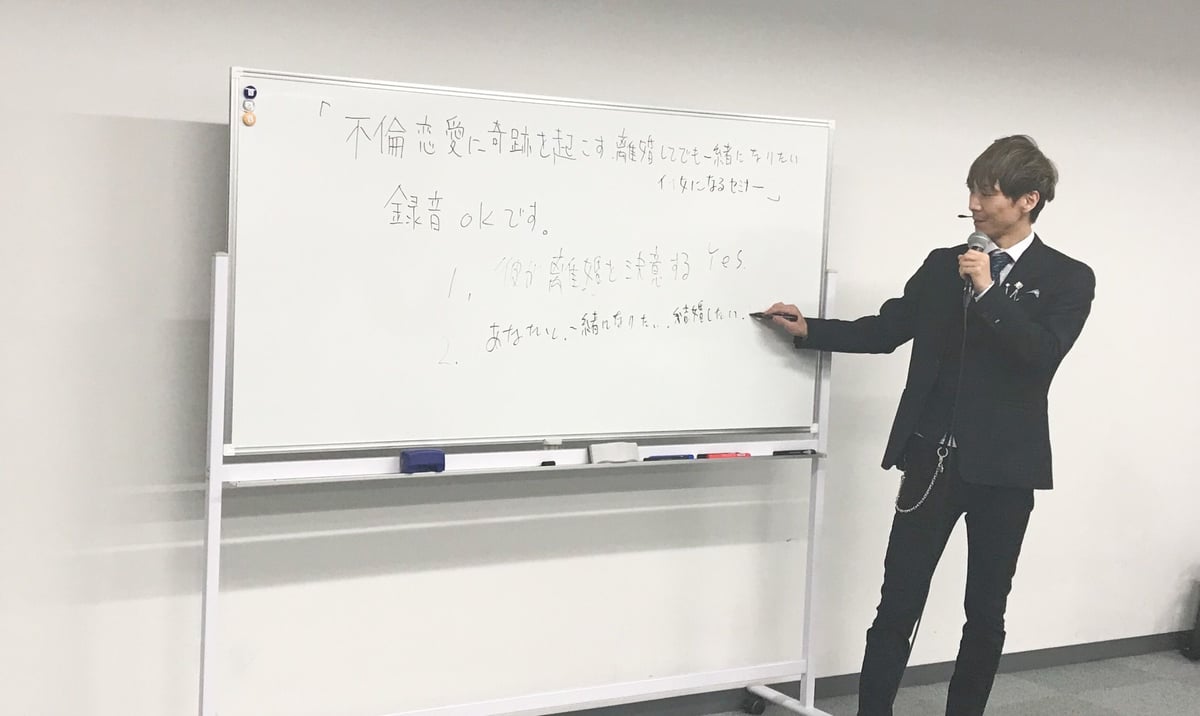 「不倫恋愛に奇跡を起こす離婚してでも一緒になりたい
になるセミナー」
録音okです。
1. 彼が離婚を決意する Yes.
2. あなたと、一緒になりたい、結婚したい、